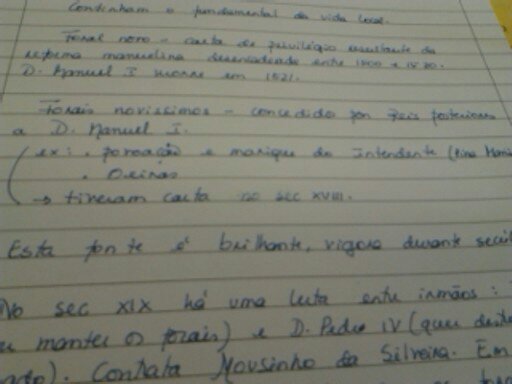 Continham o fundamental da vida local.
Foral novo - carta de privilégio resultante da
reforma manuelina desencadeada entre 1500 e 1520.
D. Manuel I morre em 1521.
Forais novíssimos - concedido por Reis posteriores
a D. Manuel I.
ex: . povoação e manique do Intendente (Pina Mani
. Oeiras
→ tiveram carta no sec XVIII.
Esta fonte é brilhante, vigora durante
No sec XIX há uma luta entre irmãos :
manter o forais) e D. Pedro IV (quer
). Contrata Mousinho da Silveira. Em